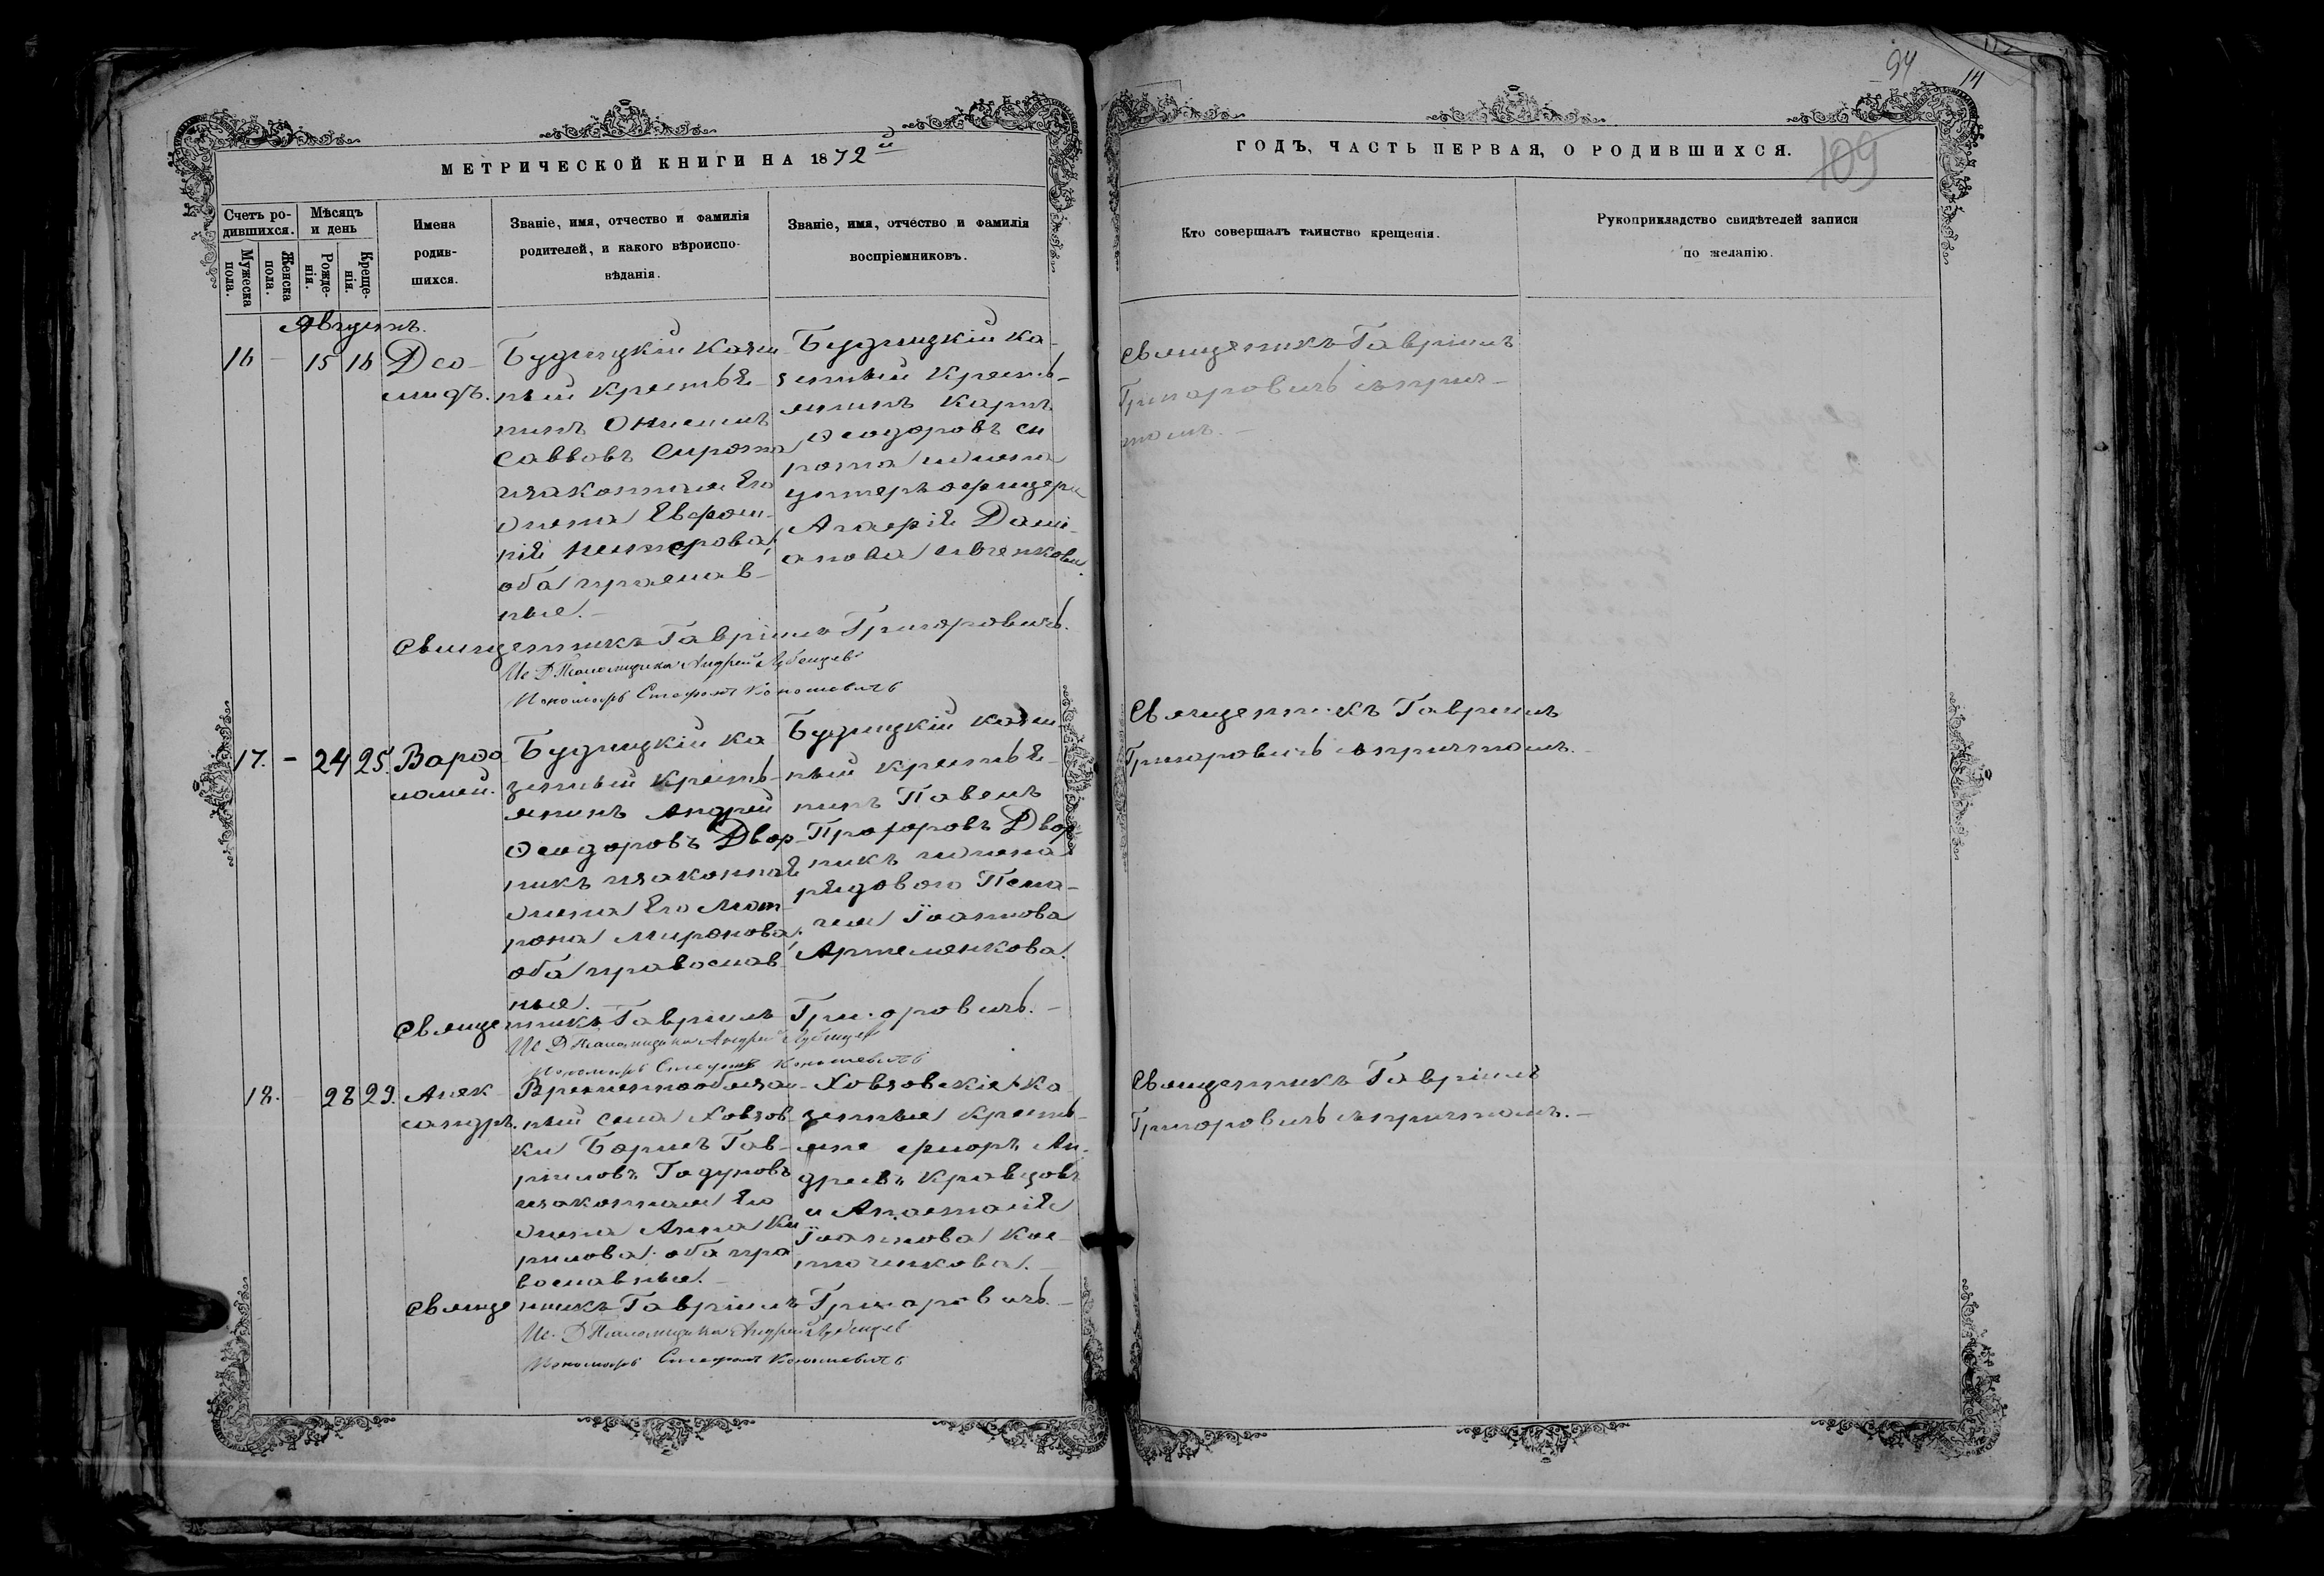 94
14
109
МЕТРИЧЕСКОЙ КНИГИ НА 1872й
ГОДЪ, ЧАСТЬ ПЕРВАЯ, О РОДИВШИХСЯ.
Счетъ ро-
дившихся.
Мужеска
пола.
Женска
пола.
Мѣсяцъ
и день
Рожде-
нія.
Креще-
нія.
Имена
родив-
шихся.
Званіе, имя, отчество и фамилія
родителей, и какого вѣроиспо-
вѣданія.
Званіе, имя, отчество и фамилія
воспріемниковъ.
Кто совершалъ таинство крещенія.
Рукоприкладство свидѣтелей записи
по желанію.
Августъ.
16 - 15 16
Дсо-
мидъ.
Будницкій казен
ный крестья-
нинъ Онисимъ
Саввовъ Сирота
изаконная Его
жена Евфоси-
нія Несторова;
оба православ-
ные.-
Будницкій ка-
зенный кресть-
янинъ Карпъ
Ѳеодоровъ Си
рота и жена
унтеръ офицера
Агафія Дамі-
анова Ивченкова.
Священникъ Гавріилъ
Григоровичь съ прич-
томъ.-
Священникъ Гавріилъ Григоровичь.
Ис. Д. Псаломщика Андрей Лубенцевъ
Пономарь Стефанъ Кономевичъ
17. - 24 25.
Варѳо
ломей.
Будницкій ка
зенный кресть-
янинъ Андрей
Ѳеодоровъ Двор-
никъ изаконная
жена Его Мот-
рона Миронова;
оба православ
ные.
Будницкій казен-
ный крестья-
нинъ Павелъ
Прохоровъ Двор-
никъ и жена
рядового Пела-
гея Іоаннова
Артеменкова.
Священникъ Гавріилъ
Григоровичь съ причтомъ.-
Священникъ Гавріилъ Григоровичь.-
Ис. Д. Псаломщика Андрей Лубенцевъ
Пономарь Стефанъ Кономевичъ
18. - 28 29.
Алек
сандръ.
Временнообяза-
ный села Ховзов-
ки Борисъ Гав-
риловъ Годуновъ
изаконная Его
жена Анна Ки
рилова; оба пра
вославные.-
Ховзовскіе ка
зенные кресть-
яне Флоръ Ан-
дреевъ Кравцовъ
и Анастасія
Іоаннова Кос-
точкова.-
Священникъ Гавріилъ
Григоровичь съ причтомъ.-
Священникъ Гавріилъ Григоровичь.-
Ис. Д. Псаломщика Андрей Лубенцевъ
Пономарь Стефанъ Кономевичъ